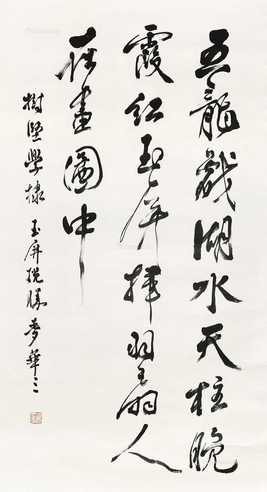 五龍戲湖水天柱晚
霞紅玉屏揮羽扇人
在畫圖中
樹堅學棣 玉屏攬勝 麥華三